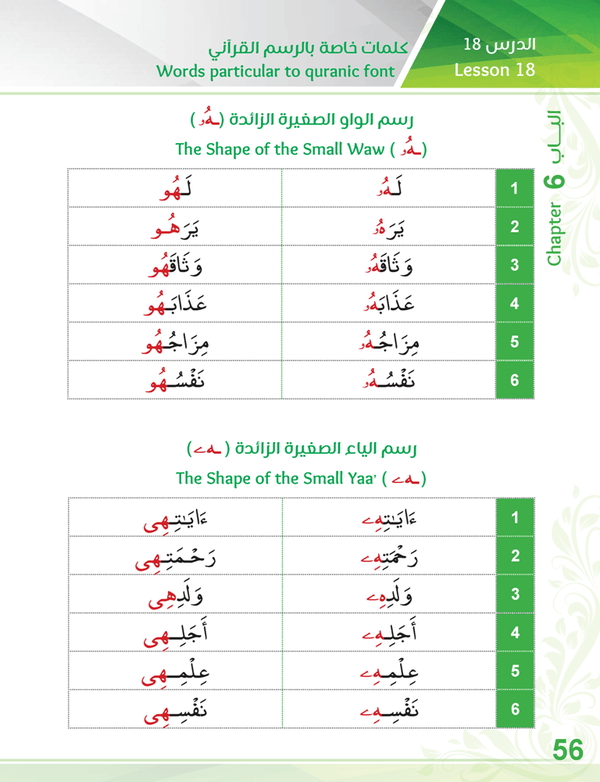 الدرس 18
Lesson 18
كلمات خاصة بالرسم القرآني
Words particular to quranic font
الباب 6 Chapter
رسم الواو الصغيرة الزائدة (ـهُۥ)
The Shape of the Small Waw (ـهُۥ)
1 لَـهُۥ لَـهُو
2 يَرَهُۥ يَرَهُـو
3 وَثَاقَهُۥ وَثَاقَهُو
4 عَذَابَهُۥ عَذَابَـهُو
5 مِزَاجُـهُۥ مِزَاجُـهُو
6 نَفْسُـهُۥ نَفْسُـهُو
رسم الياء الصغيرة الزائدة (ـهے)
The Shape of the Small Yaa' (ـهے)
1 ءَايَـٰتِهِۦ ءَايَـٰتِـهِى
2 رَحْمَتِهِۦ رَحْـمَتِـهِى
3 وَلَدِهِۦ وَلَدِهِى
4 أَجَلِـهِۦ أَجَلِـهِى
5 عِلْمِـهِۦ عِلْمِـهِى
6 نَفْسِـهِۦ نَفْسِـهِى
56